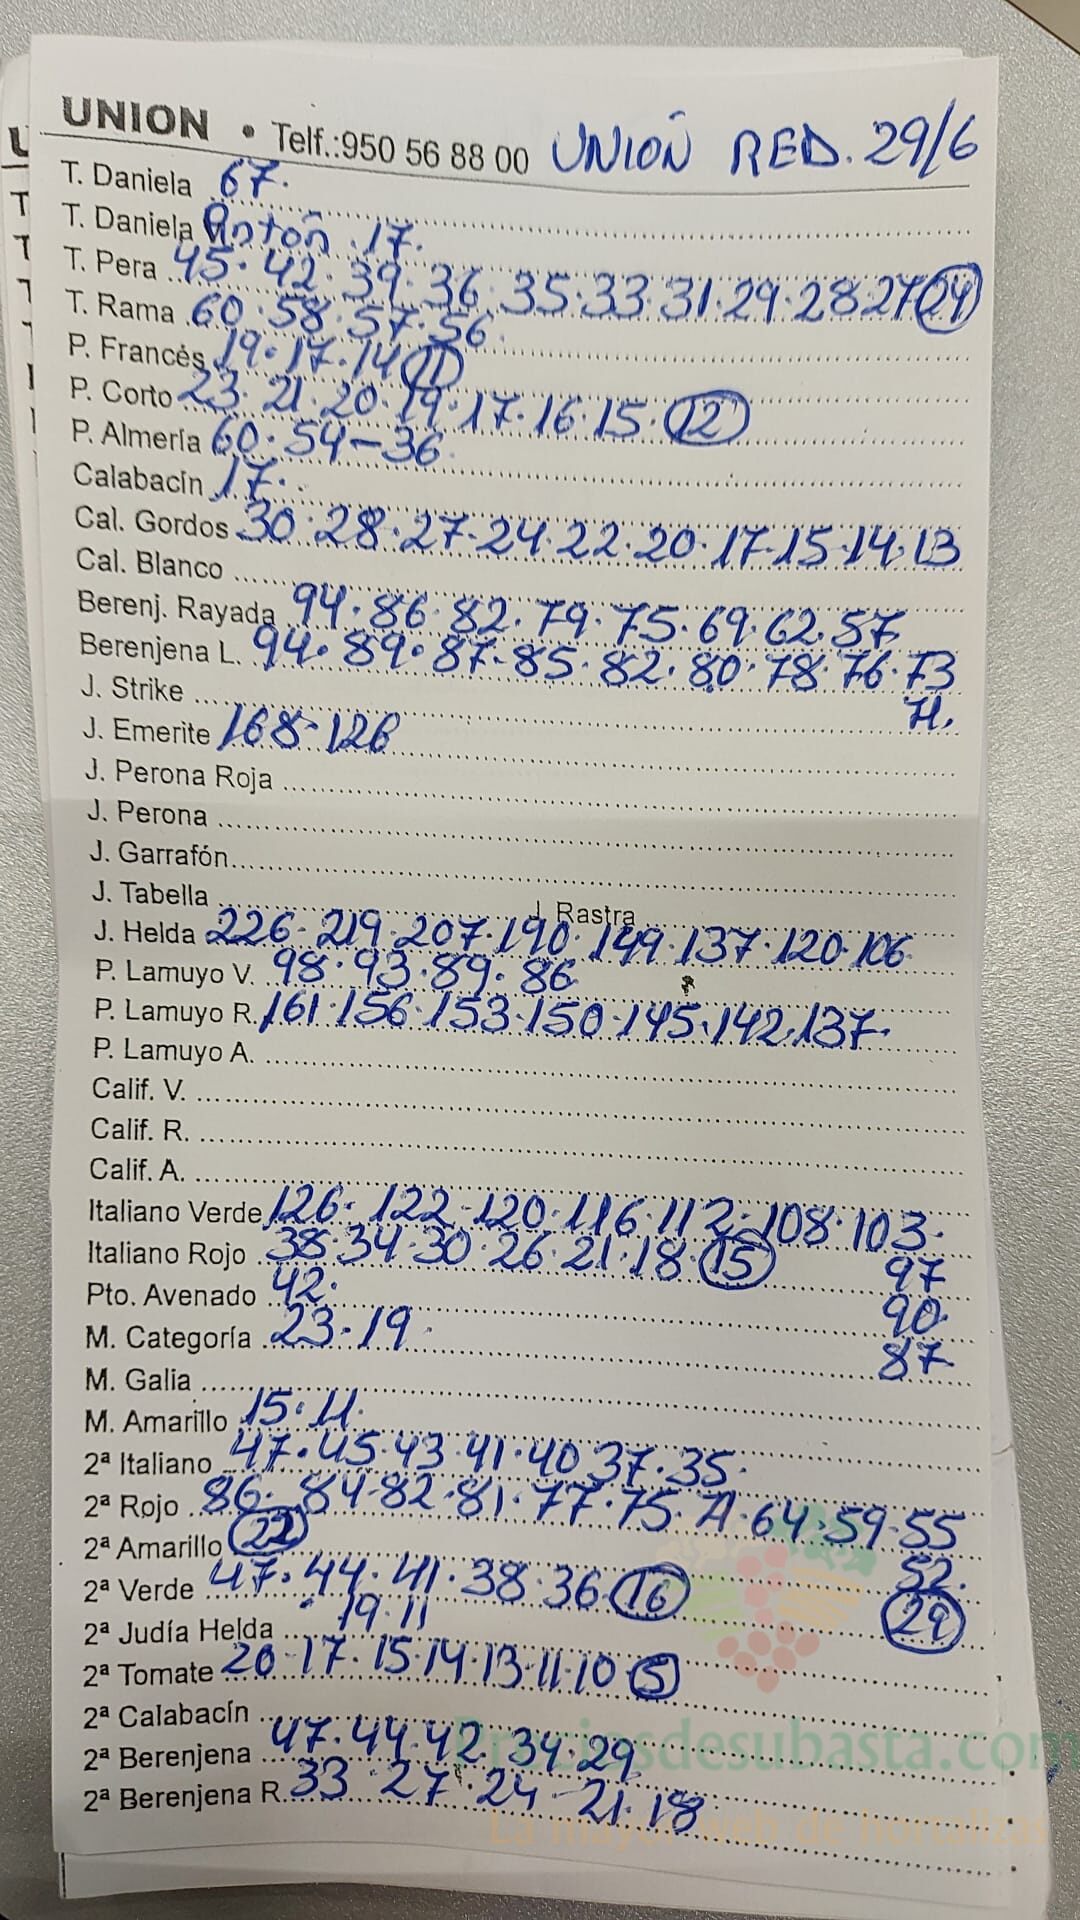 UNION • Telf.:950 56 88 00 UNIÓN RED. 29/6
T. Daniela 67.
T. Daniela Antón .17.
T. Pera 45.42.39.36.35.33.31.29.28 27 24
T. Rama 60.58.57.56.
P. Francés 19.17.14 11
P. Corto 23.21.20.19.17.16.15. 12
P. Almería 60.54-36.
Calabacín 17.
Cal. Gordos 30.28.27.24.22.20.17-15.14.13
Cal. Blanco
Berenj. Rayada 94.86.82.79.75.69.62.57
Berenjena L. 94.89.87-85.82.80.78.76.73
71.
J. Strike
J. Emerite 168-126
J. Perona Roja
J. Perona
J. Garrafón
J. Tabella J. Rastra
J. Helda 226-219.207.190.149.137.120.106
P. Lamuyo V. 98.93.89.86
P. Lamuyo R. 161.156.153.150.145.142.137.
P. Lamuyo A.
Calif. V.
Calif. R.
Calif. A.
Italiano Verde 126.122-120.116.112-108.103.
97
90.
87.
Italiano Rojo 38.34.30.26.21.18. 15
Pto. Avenado 42.
M. Categoría 23.19.
M. Galia
M. Amarillo 15.11.
2ª Italiano 47.45.43.41.40 37.35.
2ª Rojo 86.84-82.81.77.75.71.64.59.55
52.
29
2ª Amarillo 22
2ª Verde 47.44.41.38.36 16
2ª Judía Helda 19.11
2ª Tomate 20-17.15.14.13.11.10 5
2ª Calabacín
2ª Berenjena 47.44.42.34.29
2ª Berenjena R. 33.27.24-21.18
Preciosdesubasta.com
La mayor web de hortalizas